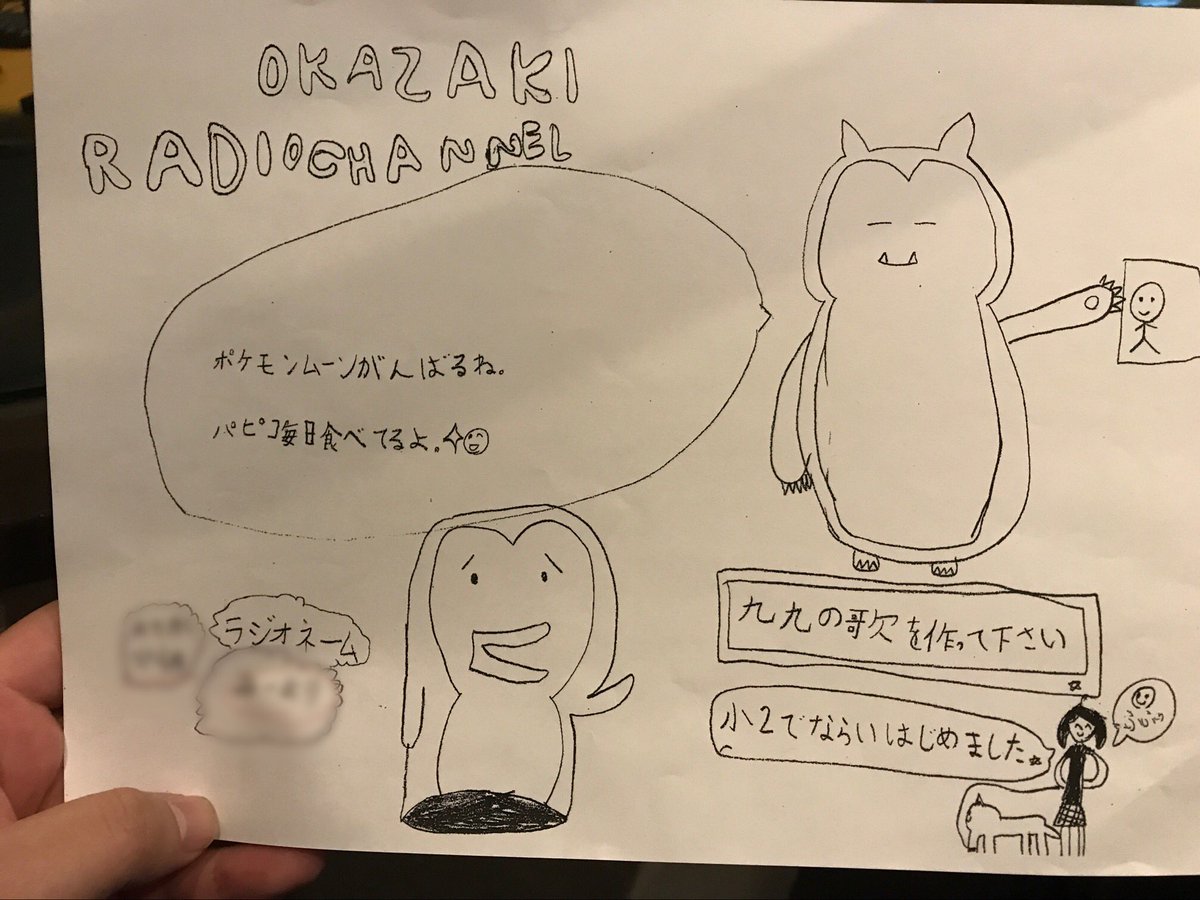 OKAZAKI
RADIOCHANNEL
ポケモンムーンがんばるね。
パピコ毎日食べてるよ。
ラジオネーム
九九の歌を作って下さい
小2でならいはじめました